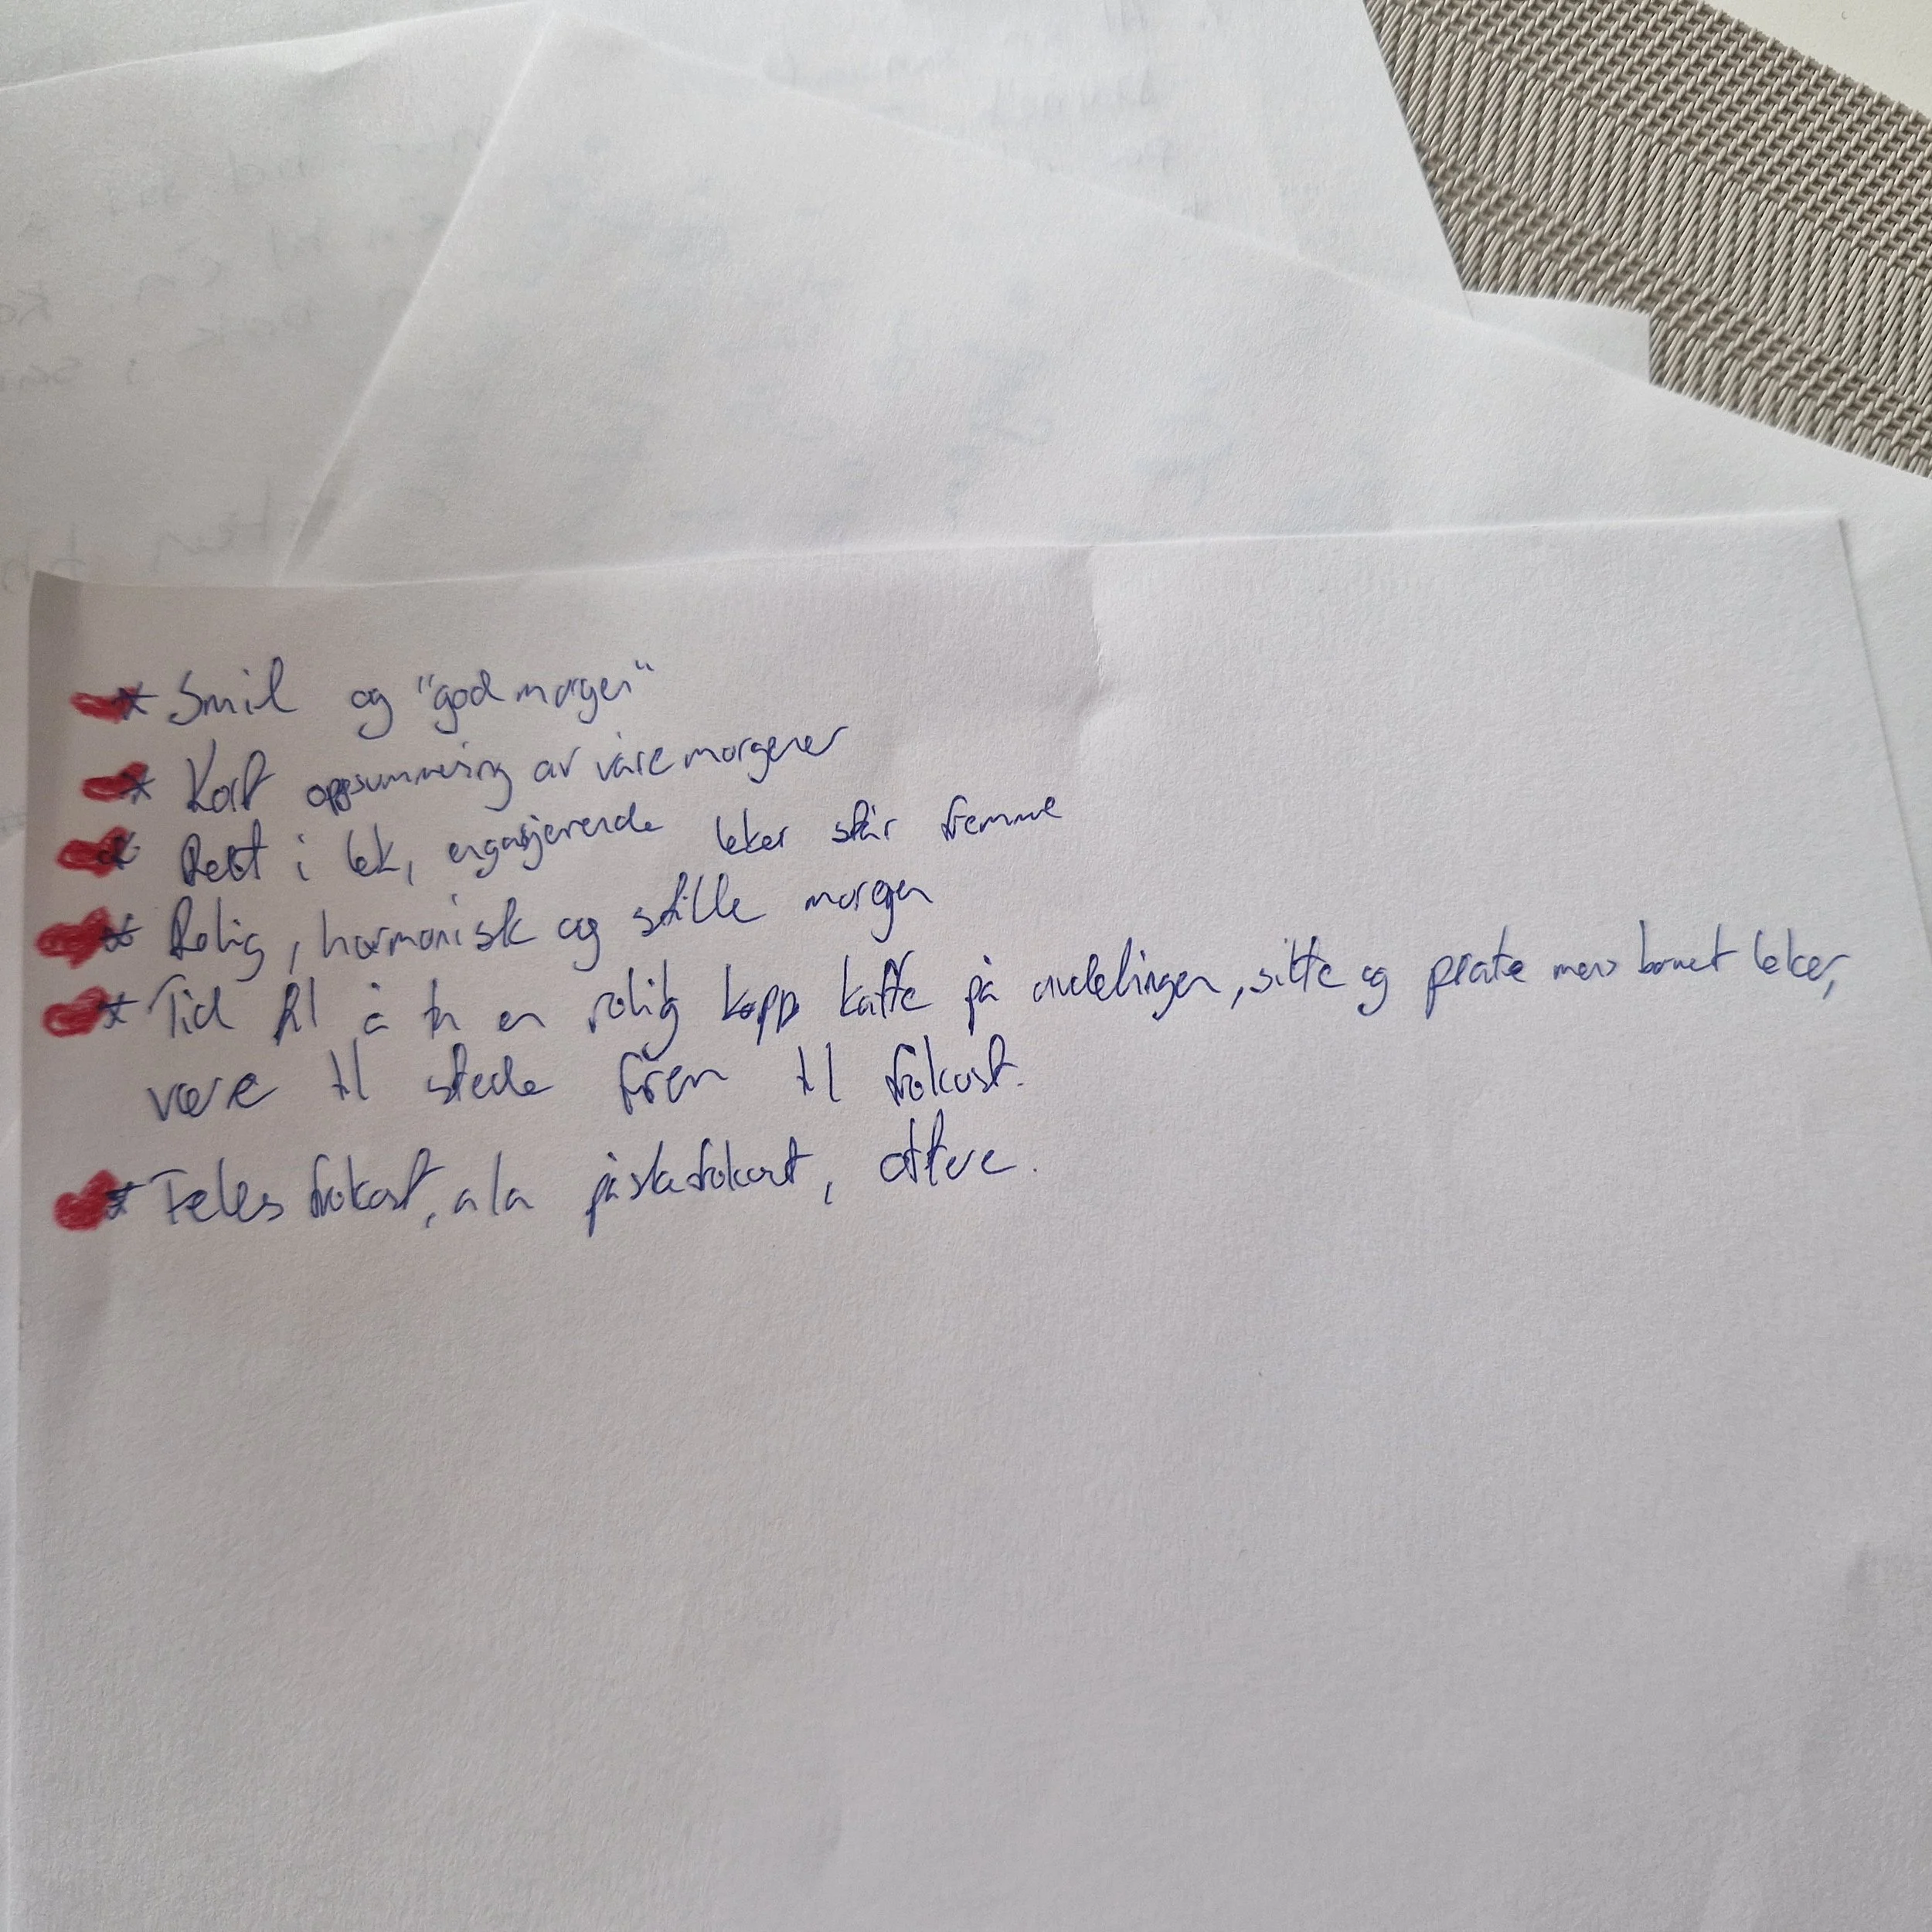 * Smil og "god morgen"
* Kort oppsummering av våre morgener
* Rett i lek, engasjerende leker står fremme
* Rolig, harmonisk og stille morgen
* Tid til å ta en rolig kopp kaffe på avdelingen, sitte og prate mens barnet leker,
være til stede frem til frokost.
* Felles frokost, a la påskefrokost, oftere.